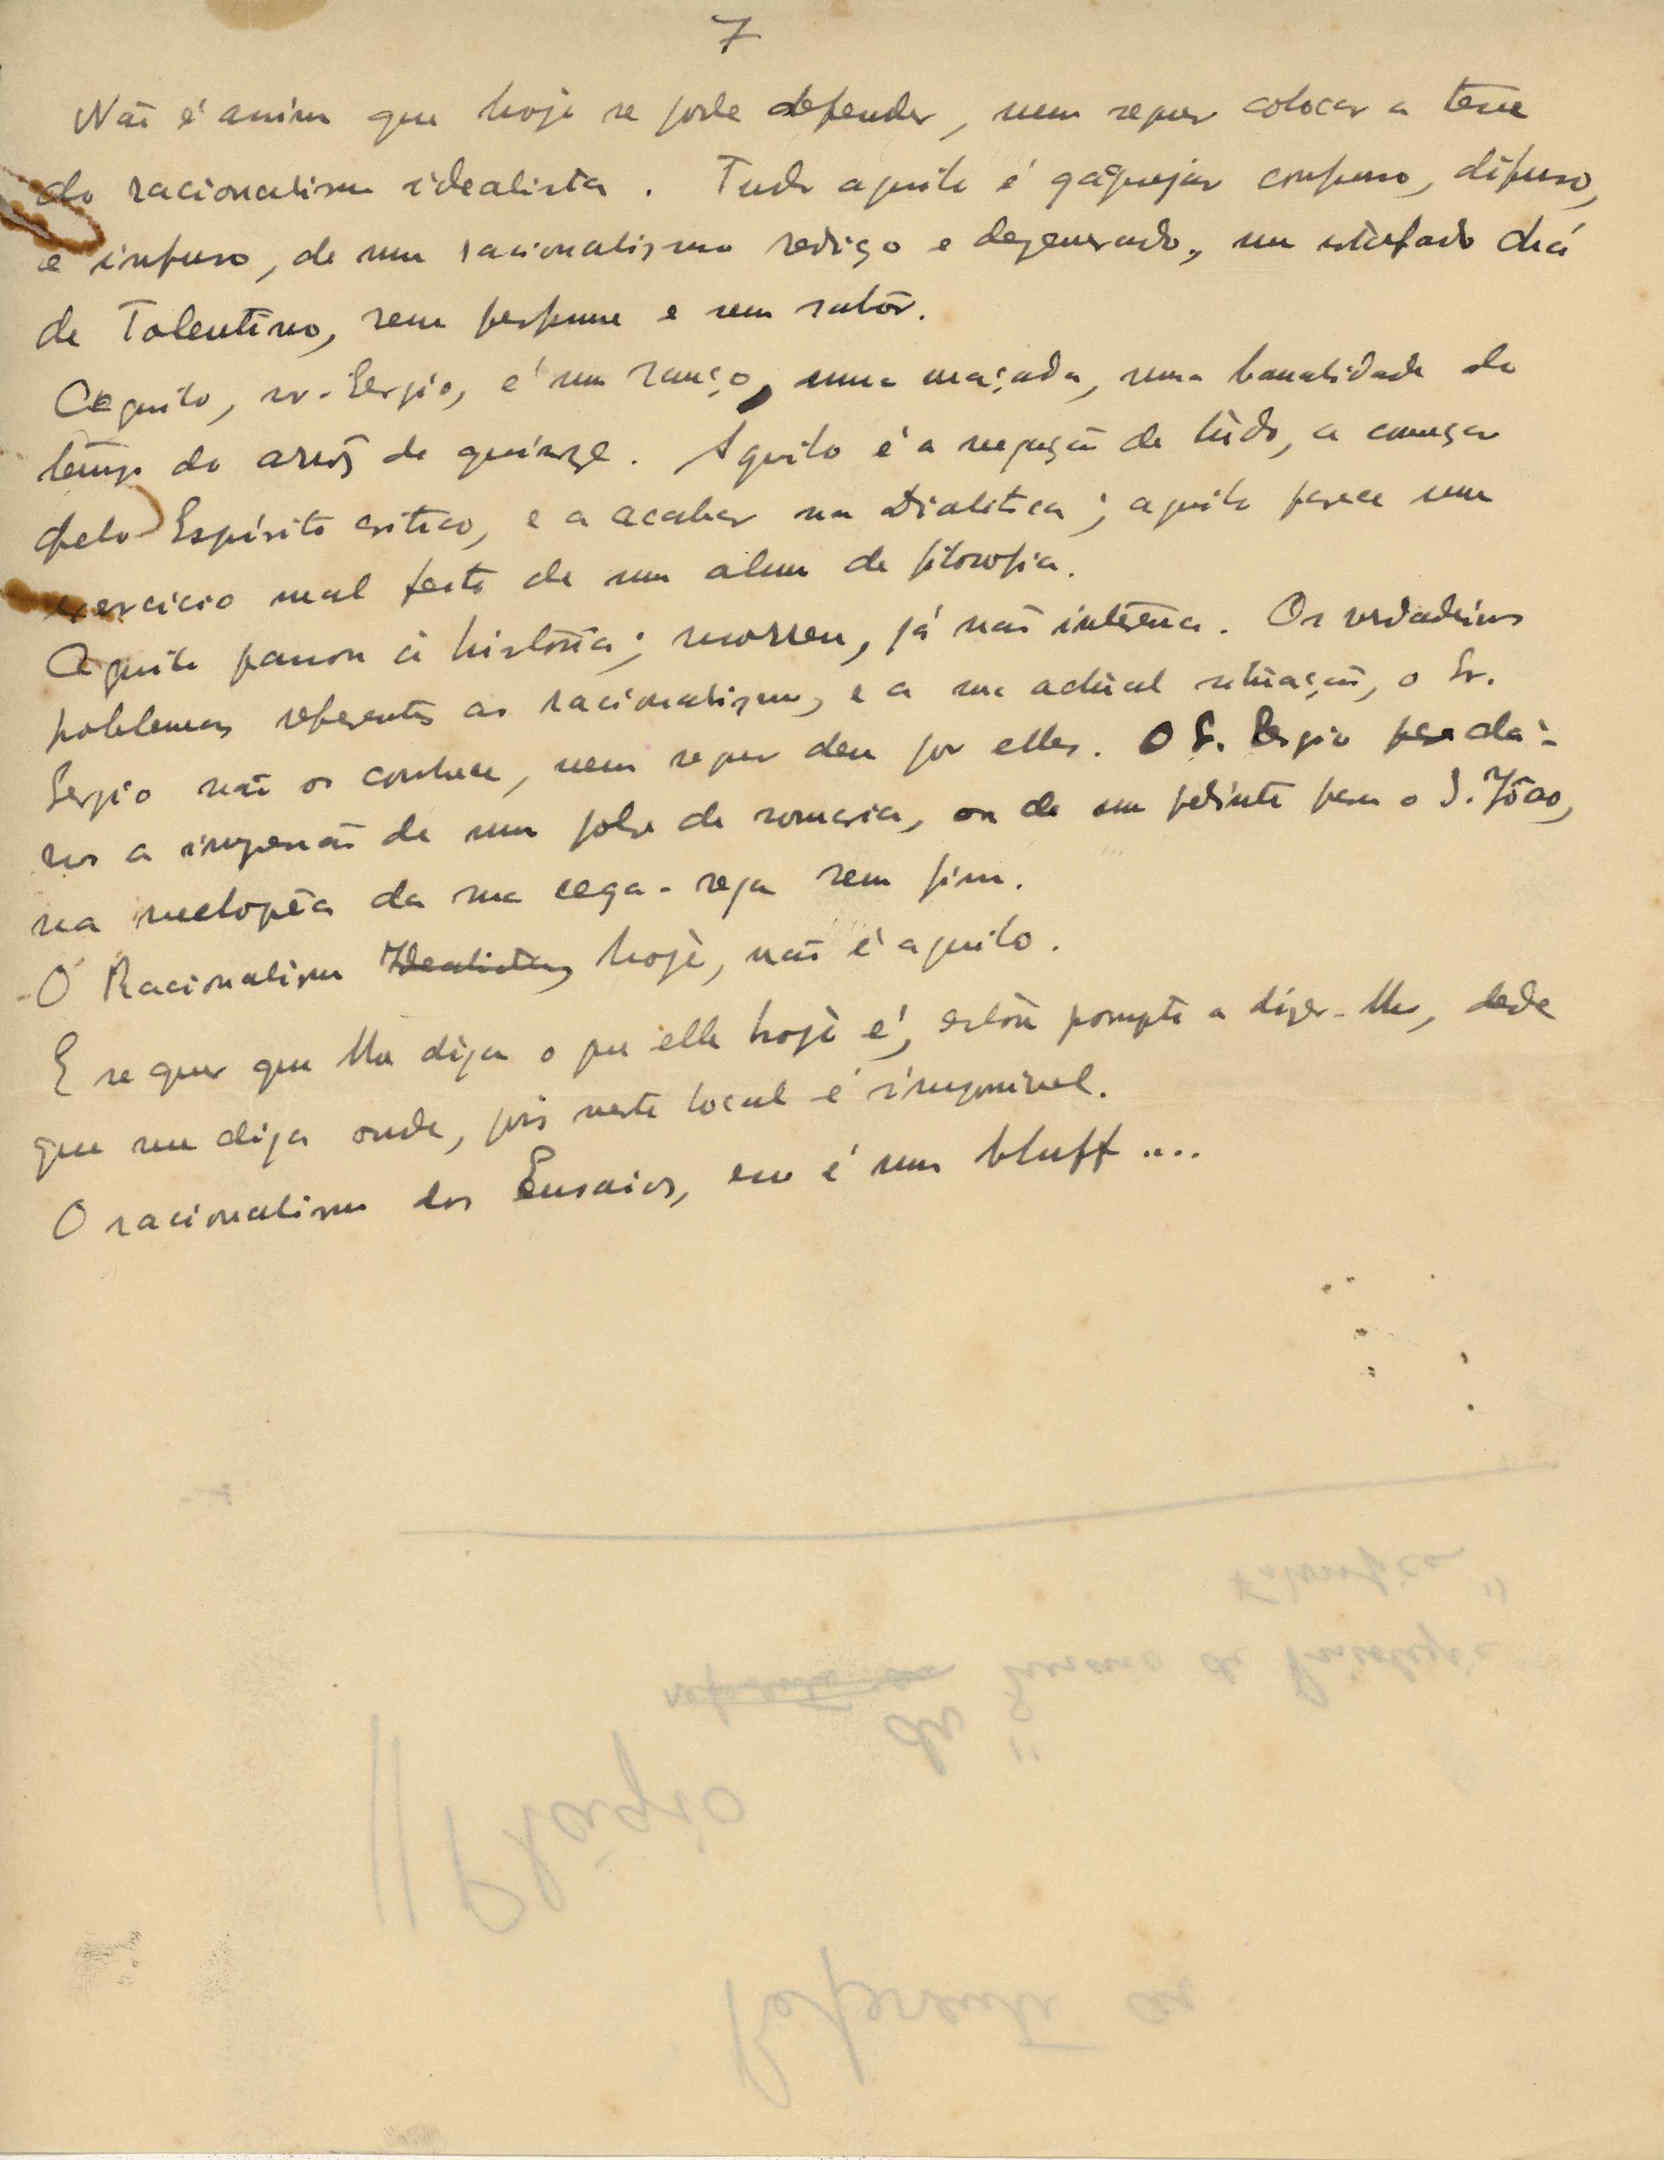 7
Não é assim que hoje se pode defender, nem sequer colocar a tese
do racionalismo idealista. Tudo aquilo é gaguejar confuso, difuso,
e infuso, de um racionalismo rediço e degenerado, um estafado chá
de Tolentino, sem perfume e sem sabôr.
Aquilo, sr. Sergio, é um ranço, uma maçada, uma banalidade do
tempo do arroz de quinze. Aquilo é a negação de túdo, a começar
pelo Espírito critico, e a acabar na Dialética; aquilo parece um
exercicio mal feito de um aluno de filosofia.
Aquilo passou á história; morreu, já não interessa. Os verdadeiros
problemas referentes ao racionalismo, e a sua actual situação, o Sr.
Sergio não os conhece, nem sequer deu por elles. O S. Sergio dá-
nos a impressão de um pobre de romaria, ou de um pedinte para o S. João,
na melopêa da sua cega-rega sem fim.
O Racionalismo Idealista, hoje, não é aquilo.
E se quer que lhe diga o que elle hoje é, estou prompto a dizer-lho, desde
que me diga onde, pois neste local é impossivel.
O racionalismo dos Ensaios, esse é um bluff....
Filosofica"
referente ao de "Ensaio de Psicologia
Plágio
Referente ao